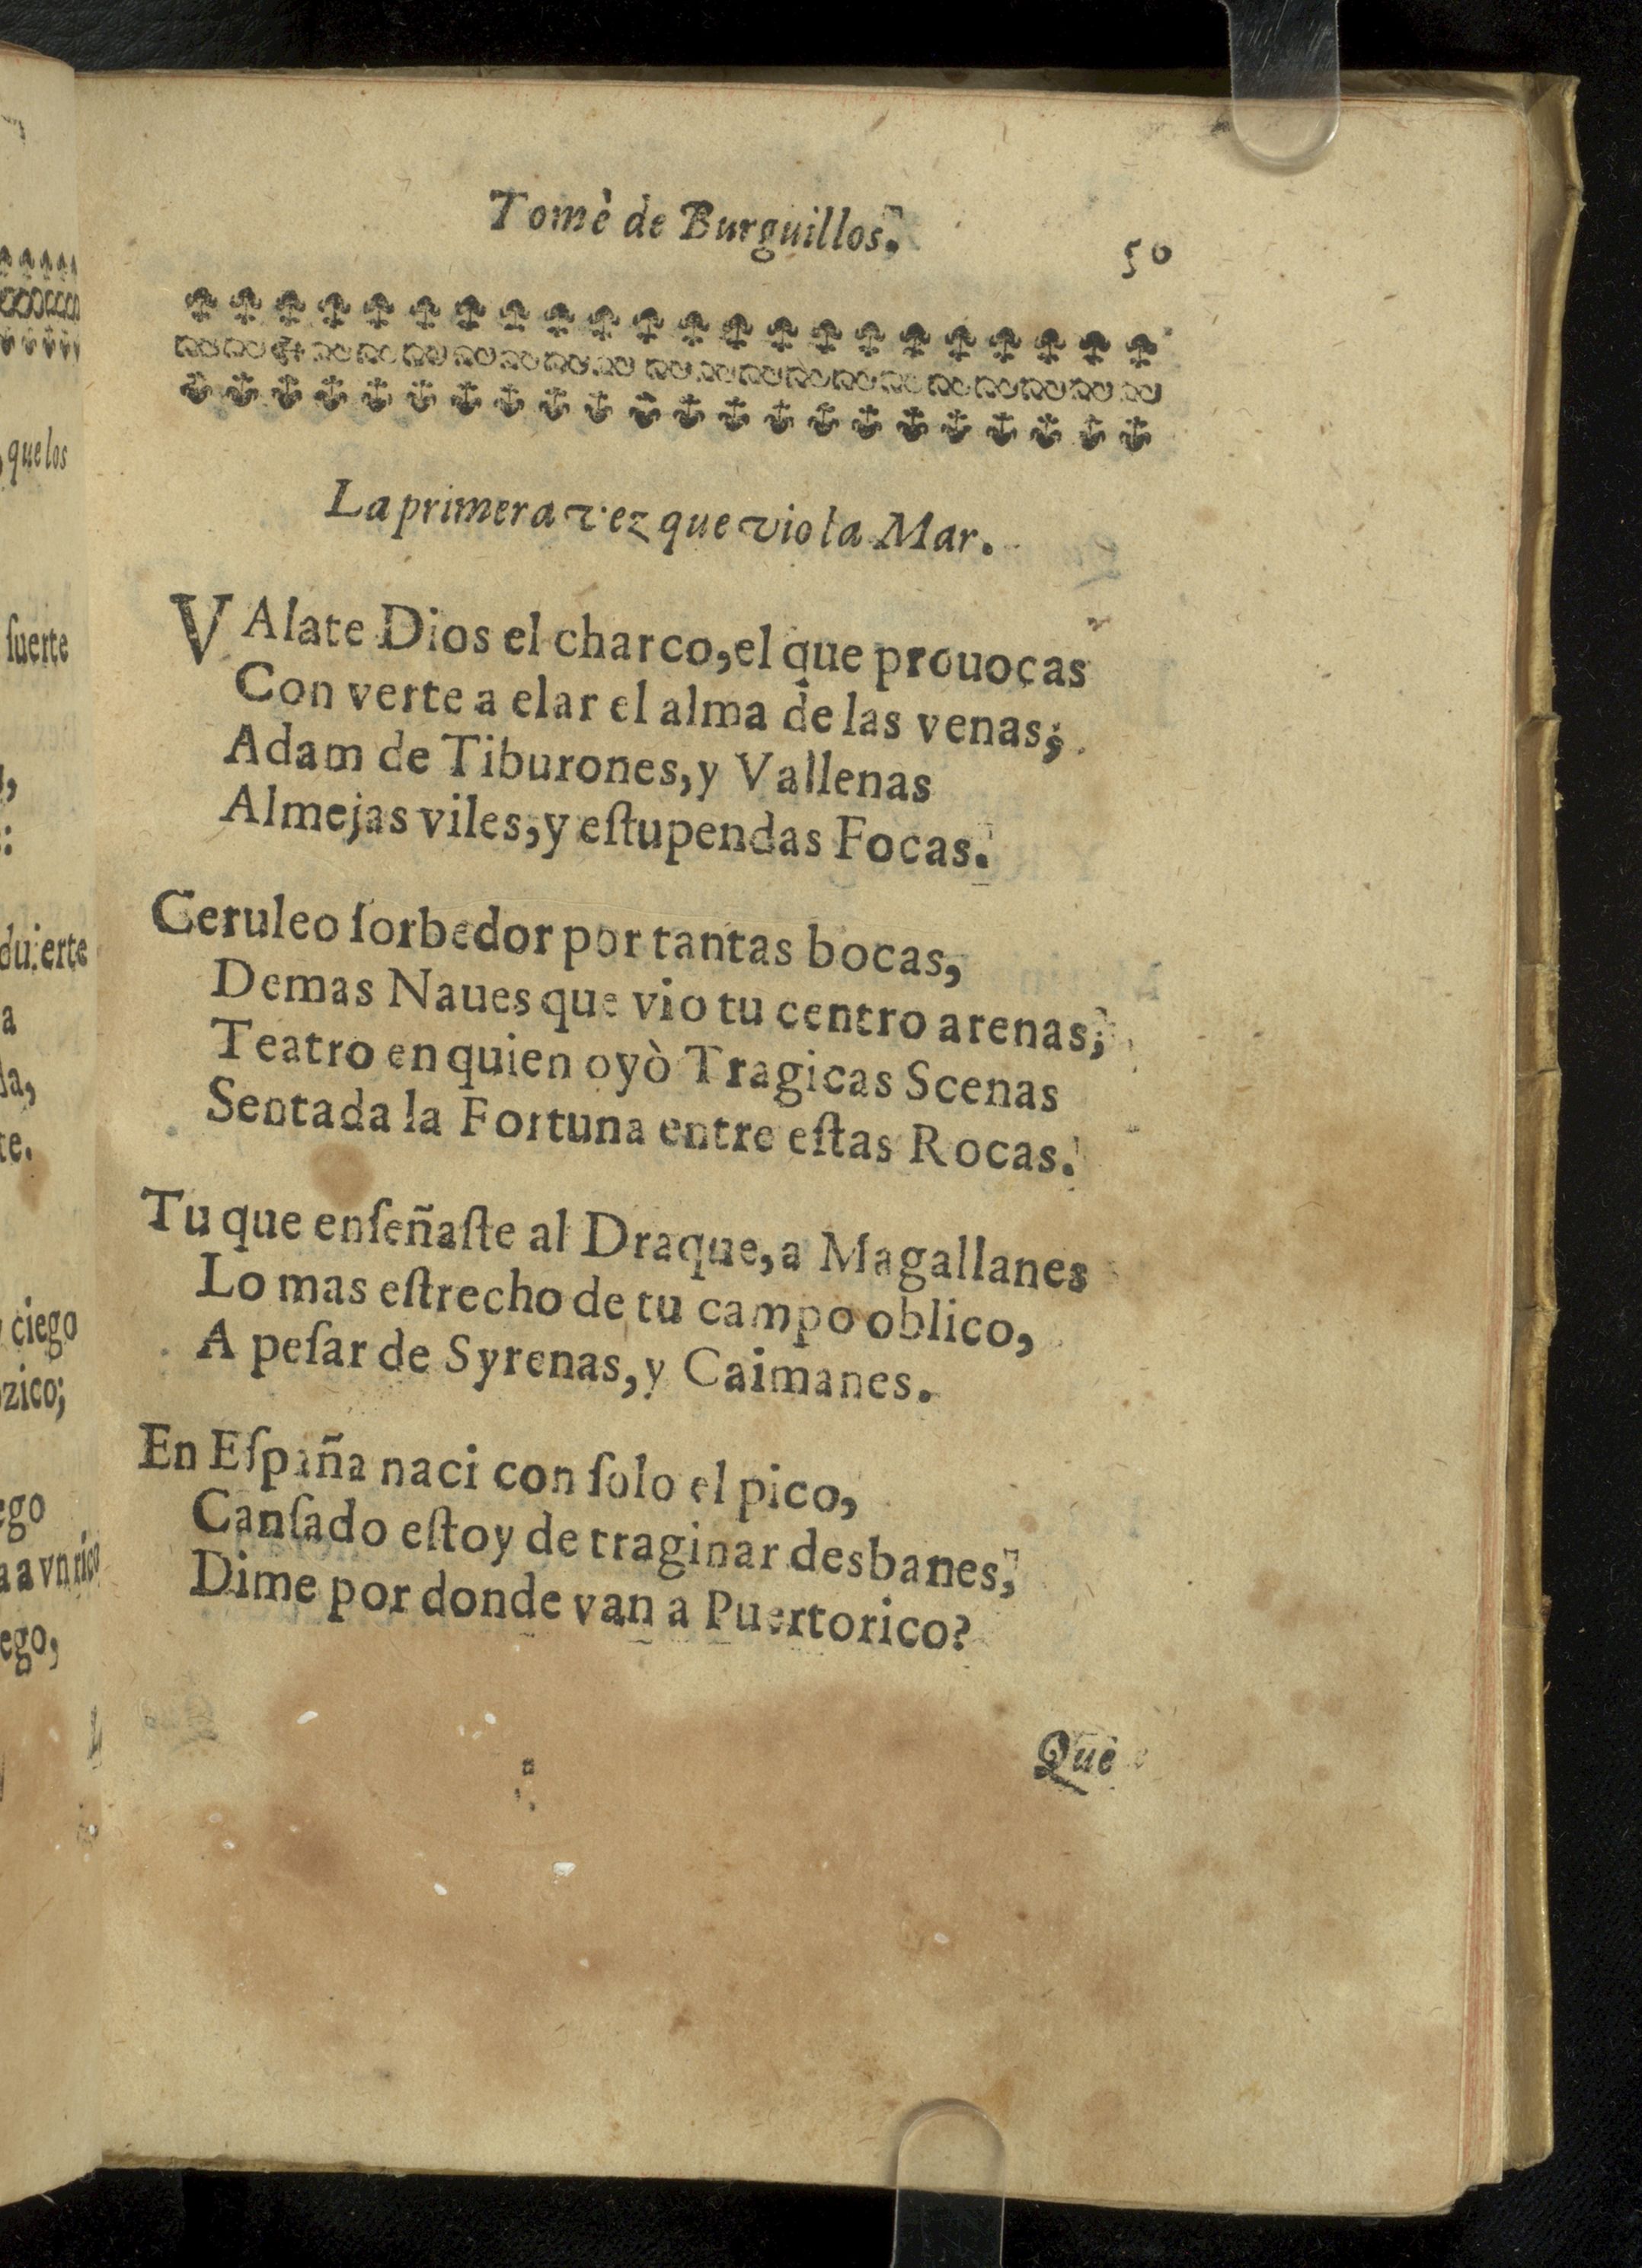 Tomè de Burguillos.
50
La primera vez que vio la Mar.
VAlate Dios el charco, el que prouocas
Con verte a elar el alma de las venas;
Adam de Tiburones, y Vallenas
Almejas viles, y eſtupendas Focas.
Ceruleo ſorbedor por tantas bocas,
Demas Naues que vio tu centro arenas;
Teatro en quien oyò Tragicas Scenas
Sentada la Fortuna entre eſtas Rocas.
Tu que enſeñaſte al Draque, a Magallanes
Lo mas eſtrecho de tu campo oblico,
A peſar de Syrenas, y Caimanes.
En Eſpaña naci con ſolo el pico,
Canſado eſtoy de traginar desbanes,
Dime por donde van a Puertorico?
Què
que los
ſuerte
duierte
a
te.
ciego
ego
a a vn rico
ego,